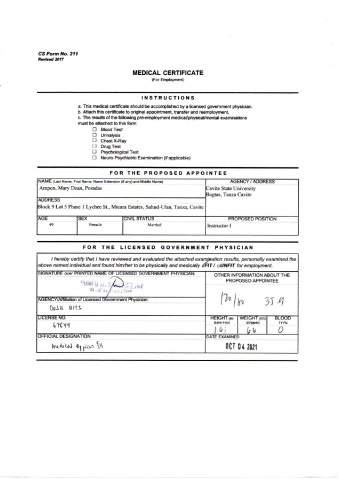 CS Form No. 211
Revised 2017
MEDICAL CERTIFICATE
(For Employment)
INSTRUCTIONS
a. This medical certificate should be accomplished by a licensed government physician.
b. Attach this certificate to original appointment, transfer and reemployment.
c. The results of the following pre-employment medical/physical/mental examinations
must be attached to this form:
☐ Blood Test
☐ Urinalysis
☐ Chest X-Ray
☐ Drug Test
☐ Psychological Test
☐ Neuro-Psychiatric Examination (if applicable)
FOR THE PROPOSED APPOINTEE
NAME (Last Name, First Name, Name Extension (if any) and Middle Name) AGENCY / ADDRESS
Mary Dean, Cavite State University
Tanza Cavite
ADDRESS
Block 9 Lot 5 Phase 1 Lychee St., Micara Estates, Sahud-Ulan, Tanza, Cavite
AGE SEX CIVIL STATUS PROPOSED POSITION
49 Female Married Instructor I
FOR THE LICENSED GOVERNMENT PHYSICIAN
I hereby certify that I have reviewed and evaluated the attached examination results, personally examined the
above named individual and found him/her to be physically and medically FIT / UNFIT for employment.
SIGNATURE over PRINTED NAME OF LICENSED GOVERNMENT PHYSICIAN: OTHER INFORMATION ABOUT THE
PROPOSED APPOINTEE
AGENCY/Affiliation of Licensed Government Physician:
LICENSE NO. HEIGHT (m) WEIGHT (kg) BLOOD
Bare Foot Stripped TYPE
66 O
OFFICIAL DESIGNATION DATE EXAMINED
OCT 04 2021